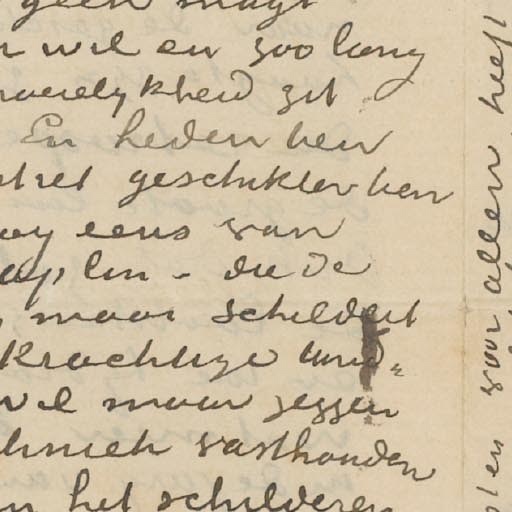 geen magt
wil en zoo lang
moeielykheid zit
En heden ben
het geschikter ben
eens van
aplin - die de
maar schildert
krachtige
wil maar zeggen
vasthouden
het schilderen
voor allen heeft